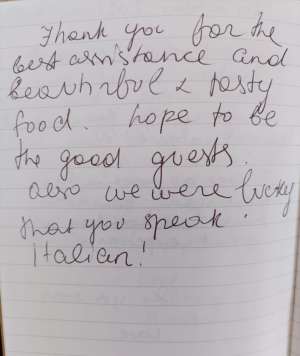 Thank you for the
best assistance and
beautifull & tasty
food. hope to be
the good guests.
also we were lucky
that you speak
Italian!